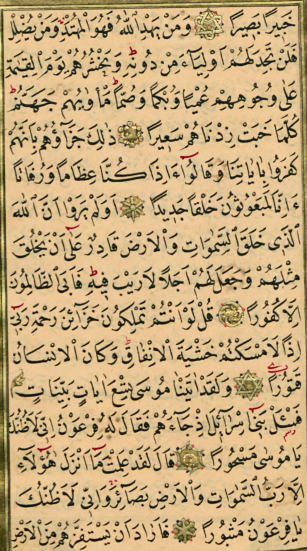 خَبِيرًا بَصِيرًا وَمَنْ يَهْدِ اللّٰهُ فَهُوَ الْمُهْتَدِ وَمَنْ يُضْلِلْ
فَلَنْ تَجِدَ لَهُمْ اَوْلِيَاءَ مِنْ دُونِهِ وَنَحْشُرُهُمْ يَوْمَ الْقِيٰمَةِ
عَلٰى وُجُوهِهِمْ عُمْيًا وَبُكْمًا وَصُمًّا مَأْوٰيهُمْ جَهَنَّمُ
كُلَّمَا خَبَتْ زِدْنَاهُمْ سَعِيرًا ذٰلِكَ جَزَاؤُهُمْ بِاَنَّهُمْ
كَفَرُوا بِاٰيَاتِنَا وَقَالُوا ءَاِذَا كُنَّا عِظَامًا وَرُفَاتًا
ءَاِنَّا لَمَبْعُوثُونَ خَلْقًا جَدِيدًا اَوَلَمْ يَرَوْا اَنَّ اللّٰهَ
الَّذِى خَلَقَ السَّمٰوَاتِ وَالْاَرْضَ قَادِرٌ عَلٰى اَنْ يَخْلُقَ
مِثْلَهُمْ وَجَعَلَ لَهُمْ اَجَلًا لَا رَيْبَ فِيهِ فَاَبَى الظَّالِمُونَ
اِلَّا كُفُورًا قُلْ لَوْ اَنْتُمْ تَمْلِكُونَ خَزَائِنَ رَحْمَةِ رَبِّى
اِذًا لَاَمْسَكْتُمْ خَشْيَةَ الْاِنْفَاقِ وَكَانَ الْاِنْسَانُ
قَتُورًا وَلَقَدْ اٰتَيْنَا مُوسٰى تِسْعَ اٰيَاتٍ بَيِّنَاتٍ
فَسْئَلْ بَنِى اِسْرَائِلَ اِذْ جَاءَهُمْ فَقَالَ لَهُ فِرْعَوْنُ اِنِّى لَاَظُنُّكَ
يَا مُوسٰى مَسْحُورًا قَالَ لَقَدْ عَلِمْتَ مَا اَنْزَلَ هٰؤُلَاءِ
اِلَّا رَبُّ السَّمٰوَاتِ وَالْاَرْضِ بَصَائِرَ وَاِنِّى لَاَظُنُّكَ
يَا فِرْعَوْنُ مَثْبُورًا فَاَرَادَ اَنْ يَسْتَفِزَّهُمْ مِنَ الْاَرْضِ